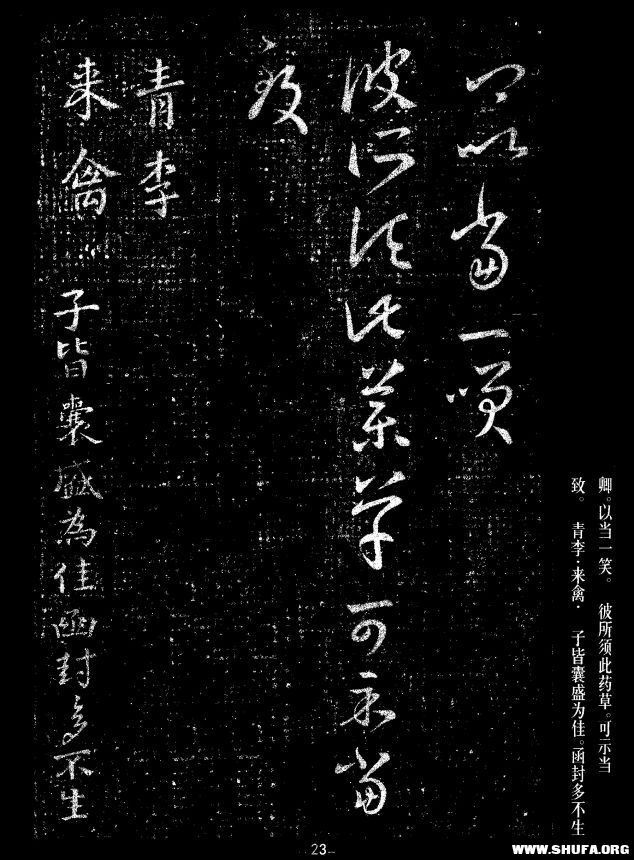 卿以当一笑
彼所须此药草可示当
致
青李
来禽
子皆囊盛为佳函封多不生
卿。以当一笑。 彼所须此药草。可示当
致。 青李·来禽· 子皆囊盛为佳。函封多不生
23
WWW.SHUFA.ORG